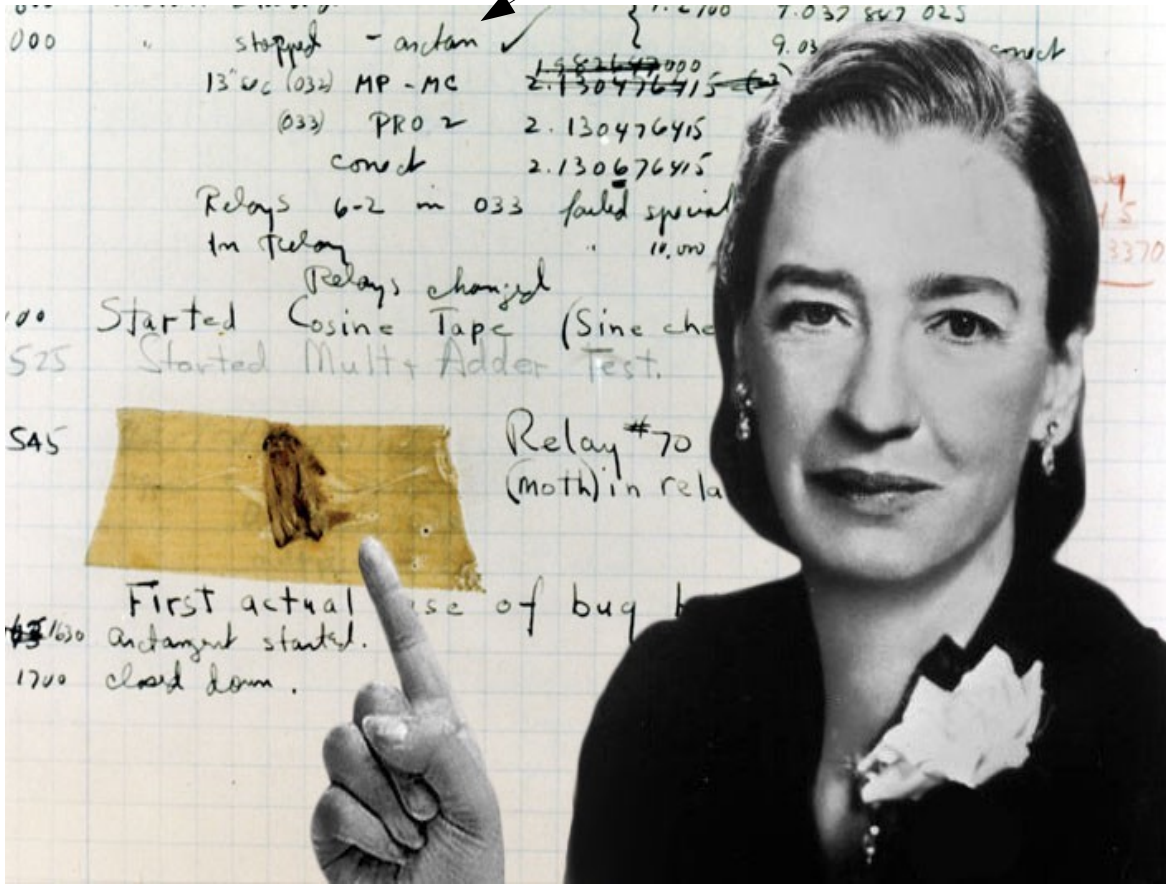 000 " stopped - arctan ✓ 9.03 correct
13" uc (032) MP - MC 2.130476415
(033) PRO 2 2.130476415
conect 2.130676415
Relays 6-2 in 033 failed special
In Relay " 10,000
Relays changed
Started Cosine Tape (Sine che
525 Started Mult + Adder Test.
545 Relay #70
(moth) in rela
First actual se of bug
1630 arctangent started.
1700 closed down.
3370